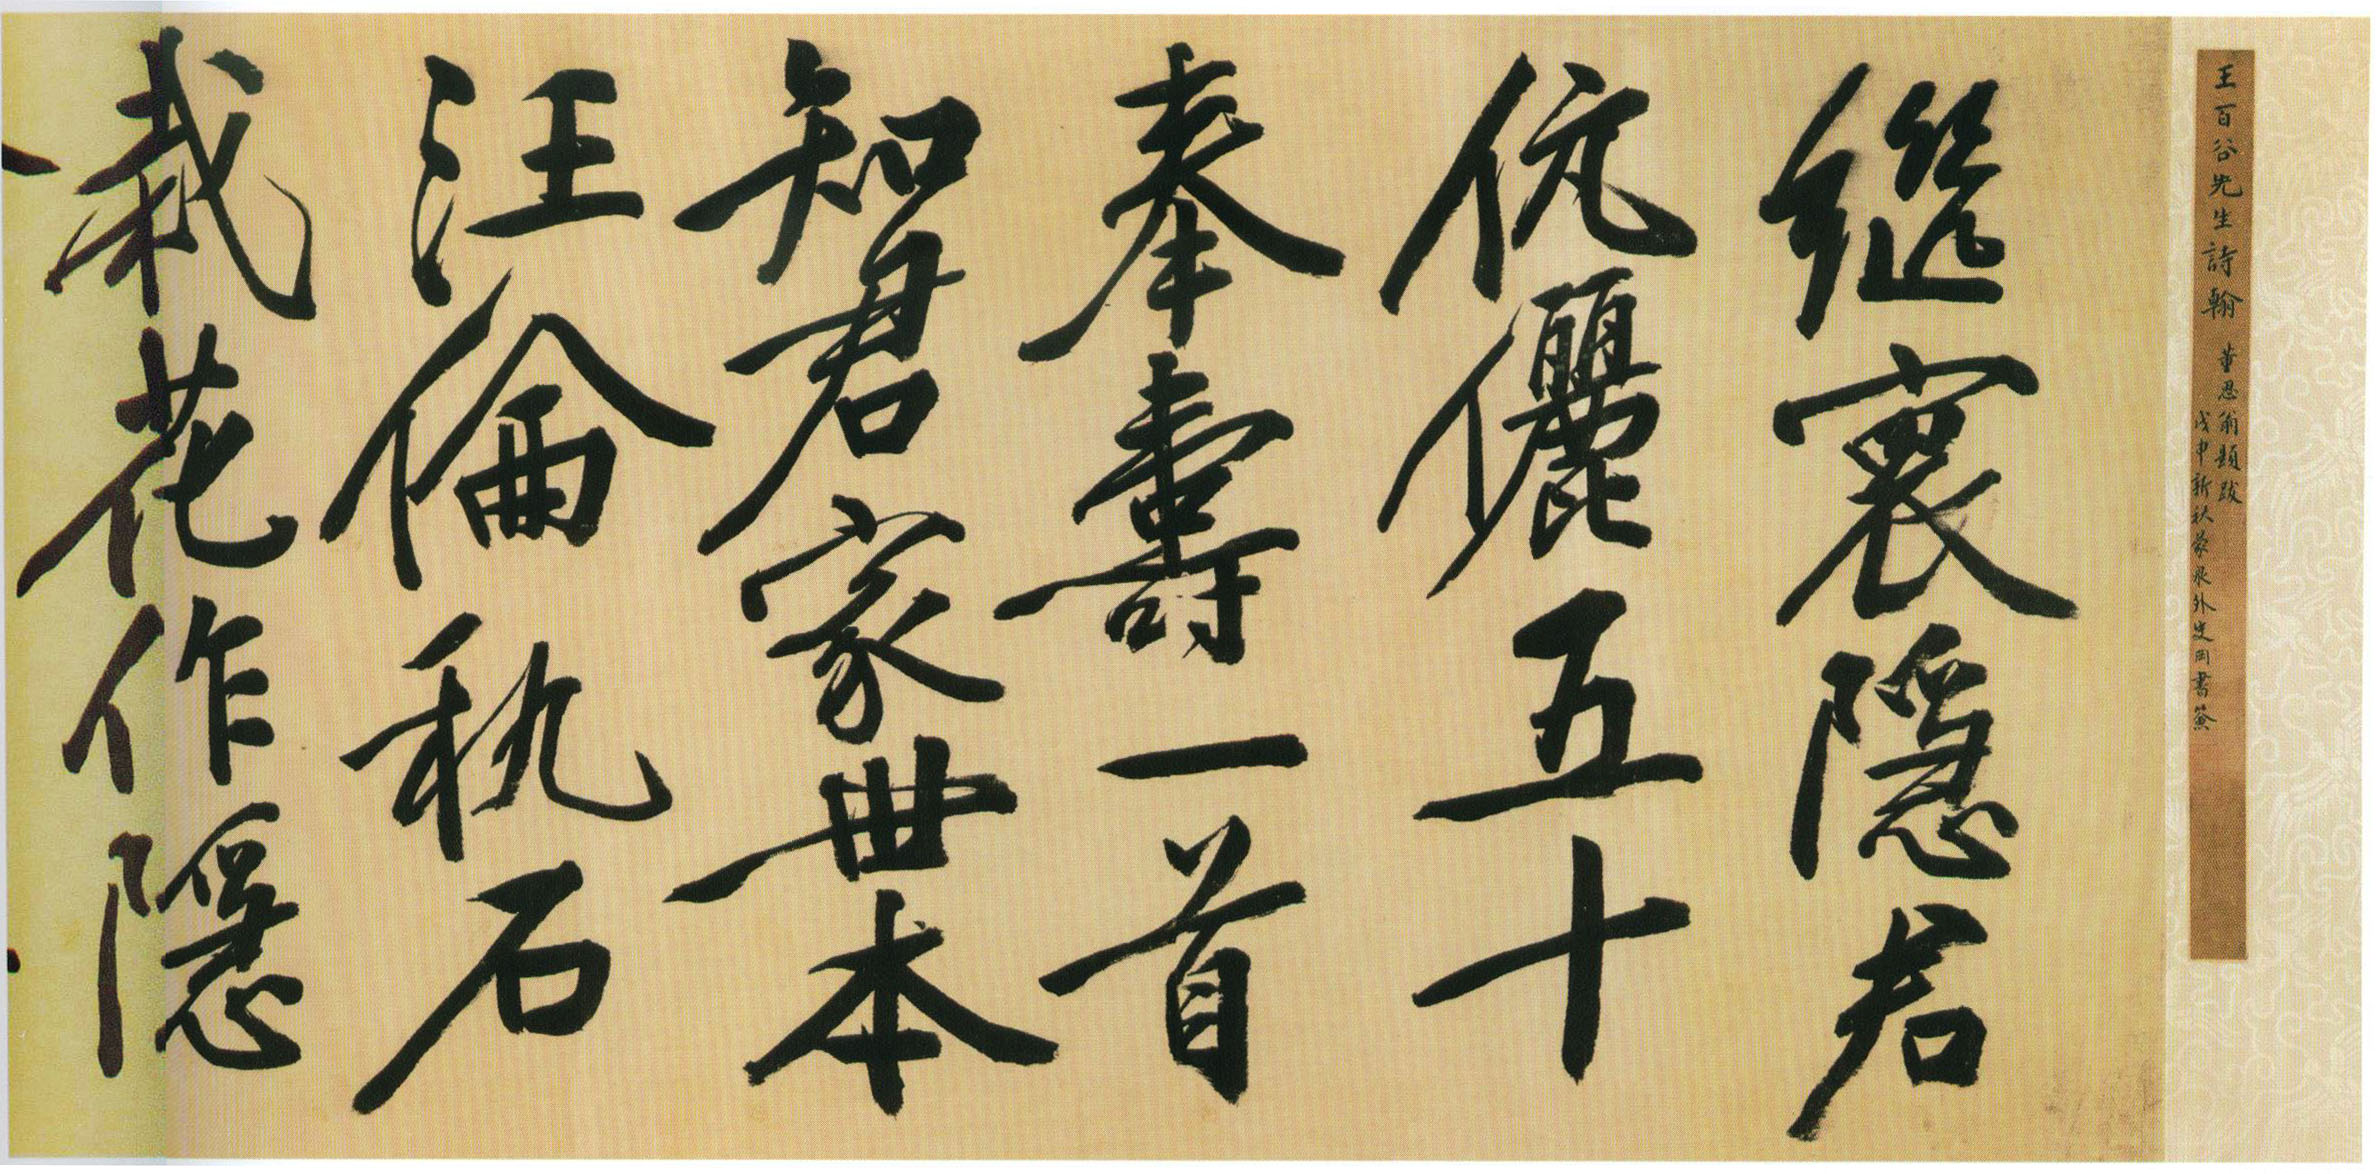 王百谷先生詩翰
董思翁題跋
戊申新秋蒙泉外史岡書簽
繼寰隱君
伉儷五十
奉壽一首
知君家世本
汪倫執石
栽花作隱